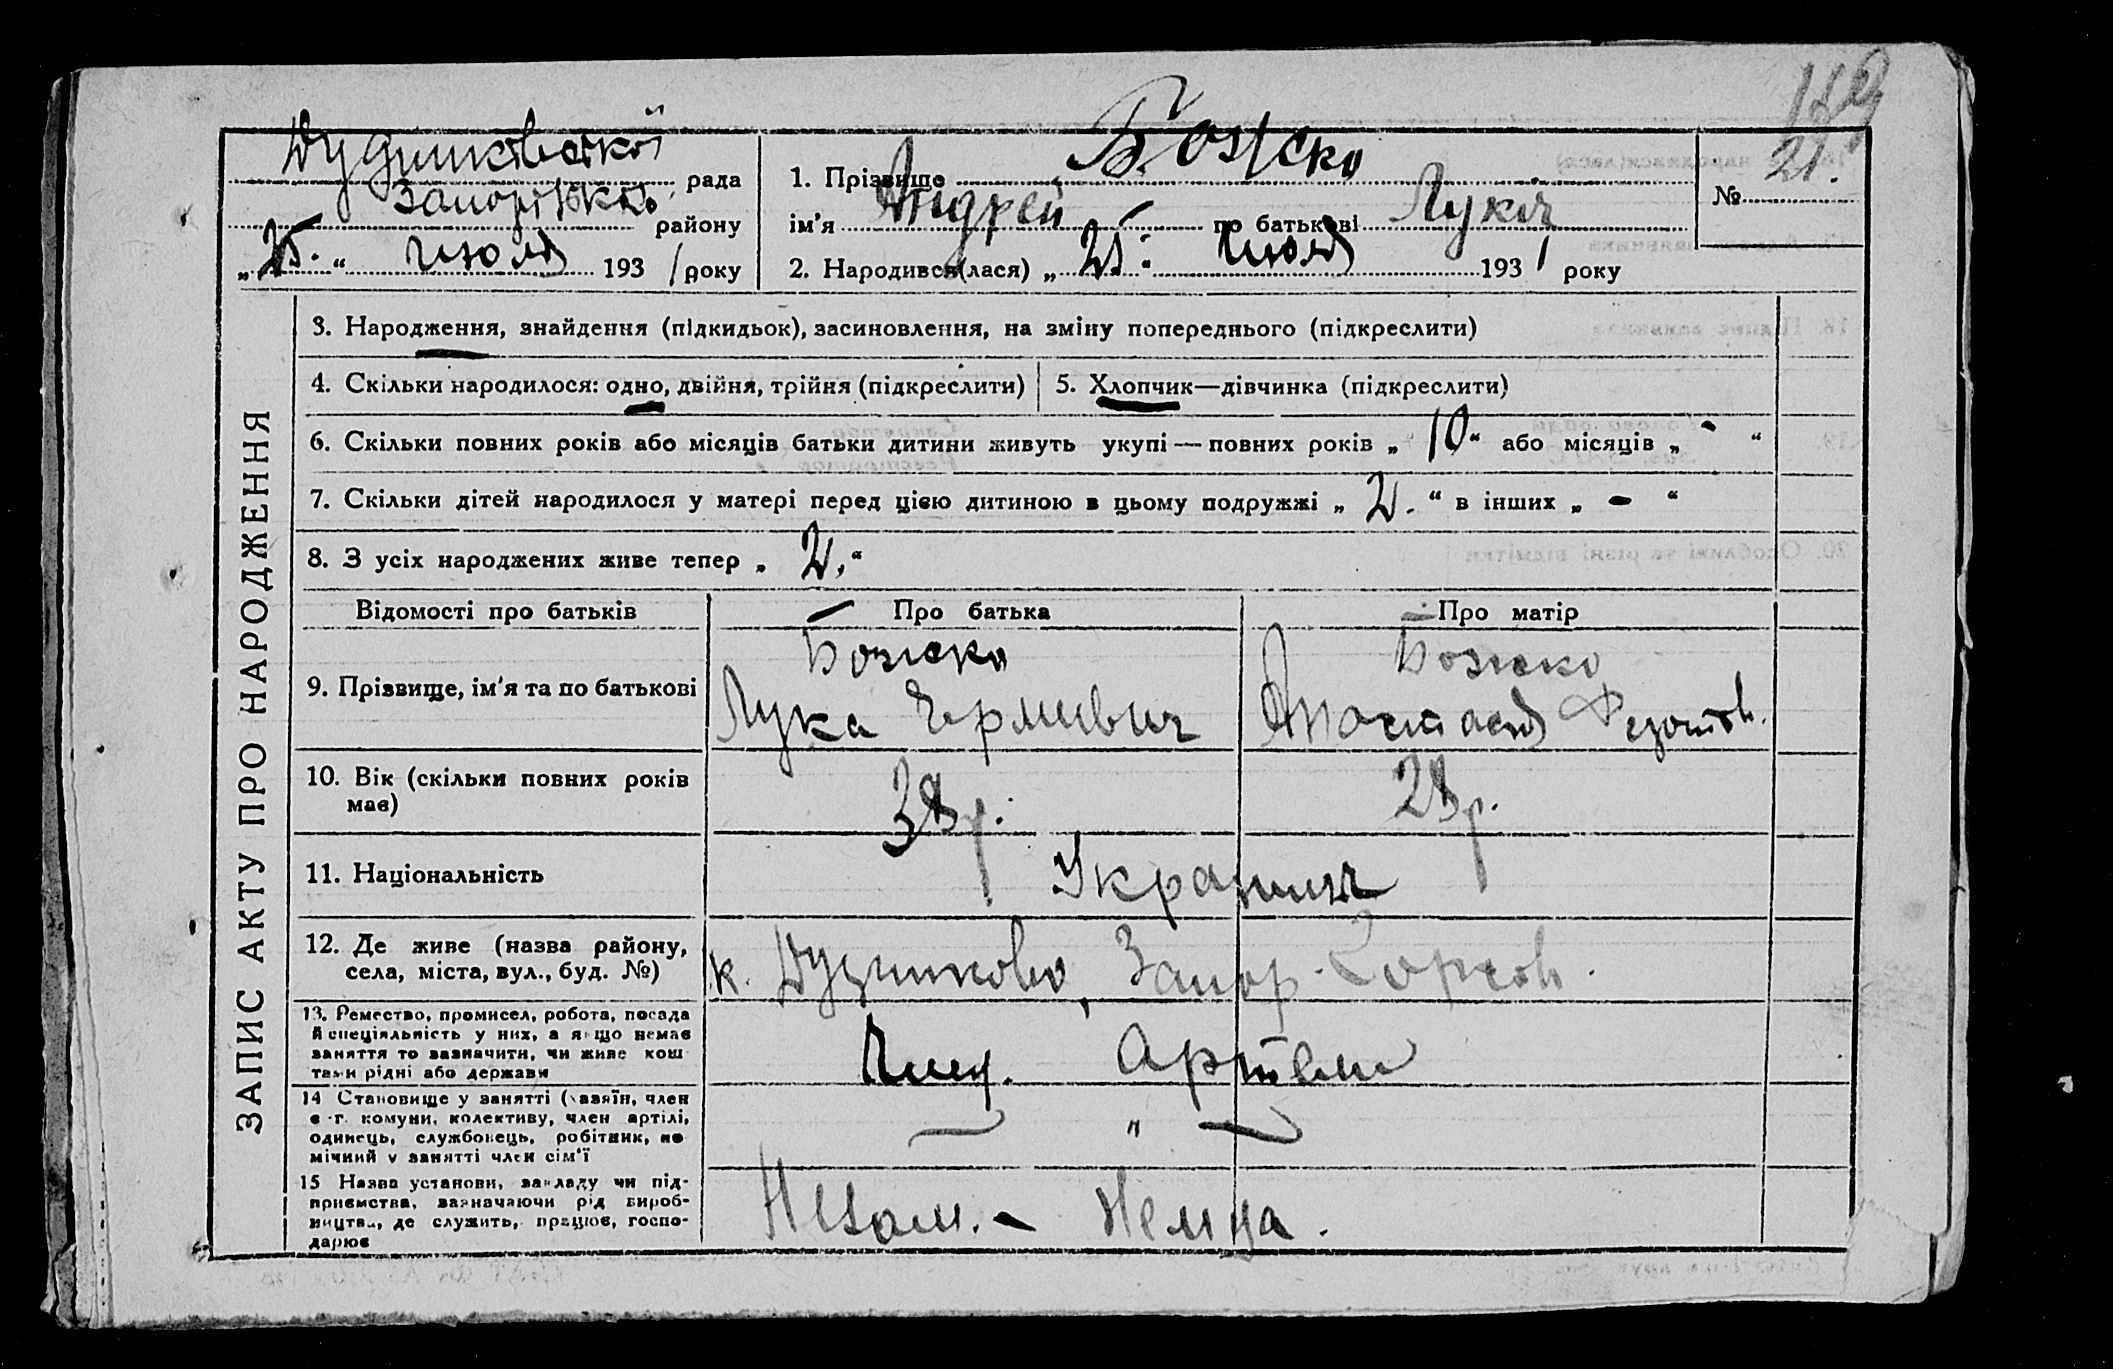 159
21.
рада
району
„25.“ июля 1931 року
1. Прізвище Божко
ім'я Андрей по батькові Лукич
2. Народився(лася) „25.“ июля 1931 року
№
ЗАПИС АКТУ ПРО НАРОДЖЕННЯ
3. Народження, знайдення (підкидьок), засиновлення, на зміну попереднього (підкреслити)
4. Скільки народилося: одно, двійня, трійня (підкреслити) 5. Хлопчик—дівчинка (підкреслити)
6. Скільки повних років або місяців батьки дитини живуть укупі — повних років „10“ або місяців „-“
7. Скільки дітей народилося у матері перед цією дитиною в цьому подружжі „2.“ в інших „-“
8. З усіх народжених живе тепер „2.“
Відомості про батьків Про батька Про матір
9. Прізвище, ім'я та по батькові
Божко Божко
Лука
10. Вік (скільки повних років має)
28р.
11. Національність
12. Де живе (назва району,
села, міста, вул., буд. №)
к.
13. Ремество, промисел, робота, посада
й спеціяльність у них, а якщо немає
заняття то зазначити, чи живе кош
тами рідні або держави
14 Становище у занятті (хазяїн, член
с-г. комуни, колективу, член артілі,
одинець, службовець, робітник, по
мічний у занятті член сім'ї
— „ —
15 Назва установи, закладу чи під-
приємства, зазначаючи рід вироб-
ництва, де служить, працює, госпо-
дарює